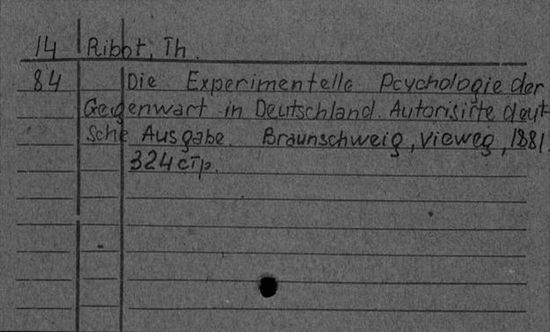 14 Ribot, Th.
84 Die Experimentelle Pcychologie der
Gegenwart in Deutschland. Autorisirte deut-
sche Ausgabe. Braunschweig, Vieweg, 1881.
324 стр.